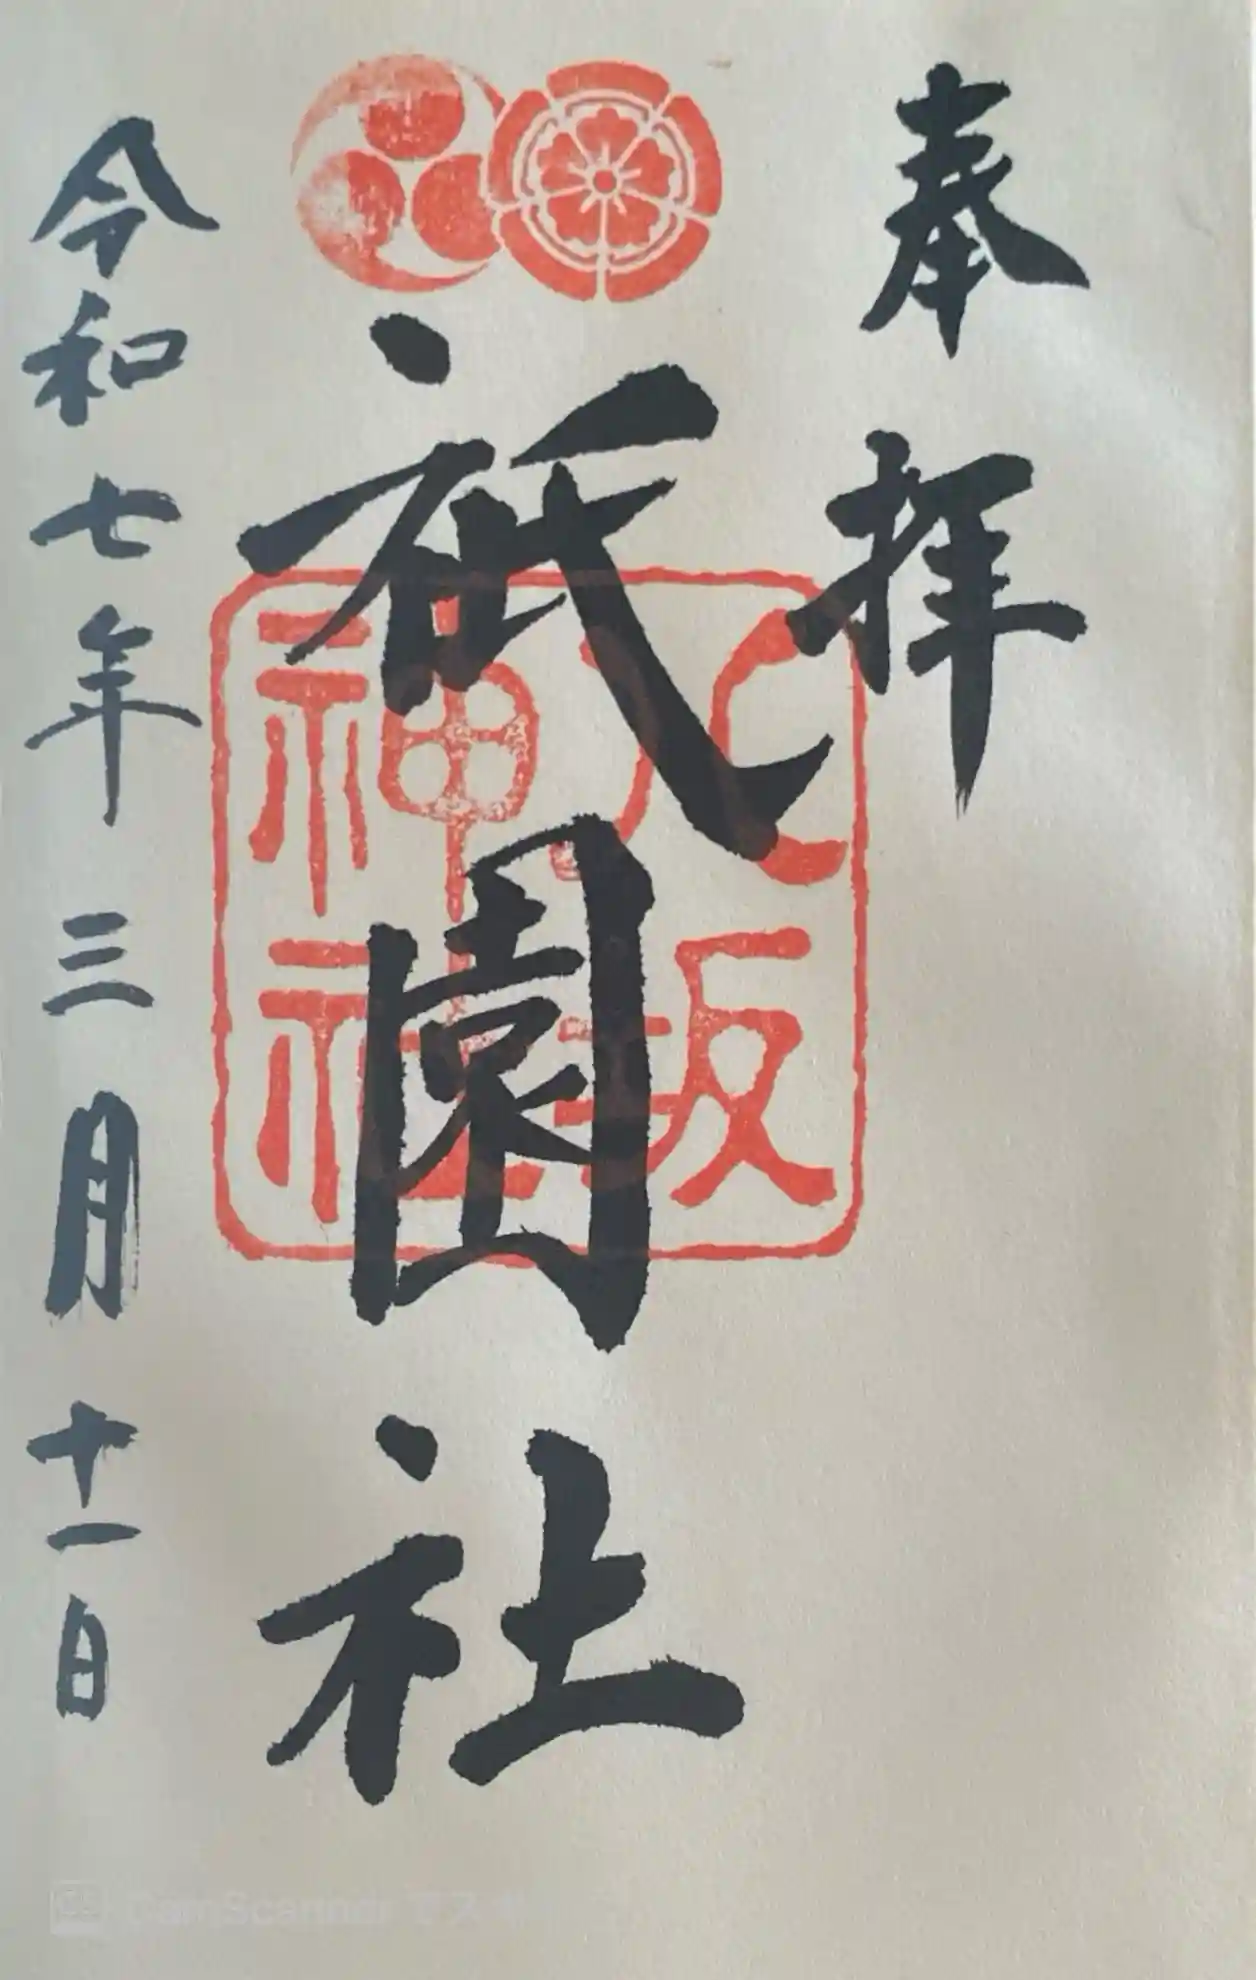 奉拝
祇園社
八坂
神社
令和七年三月十一日
CamScanner でスキ